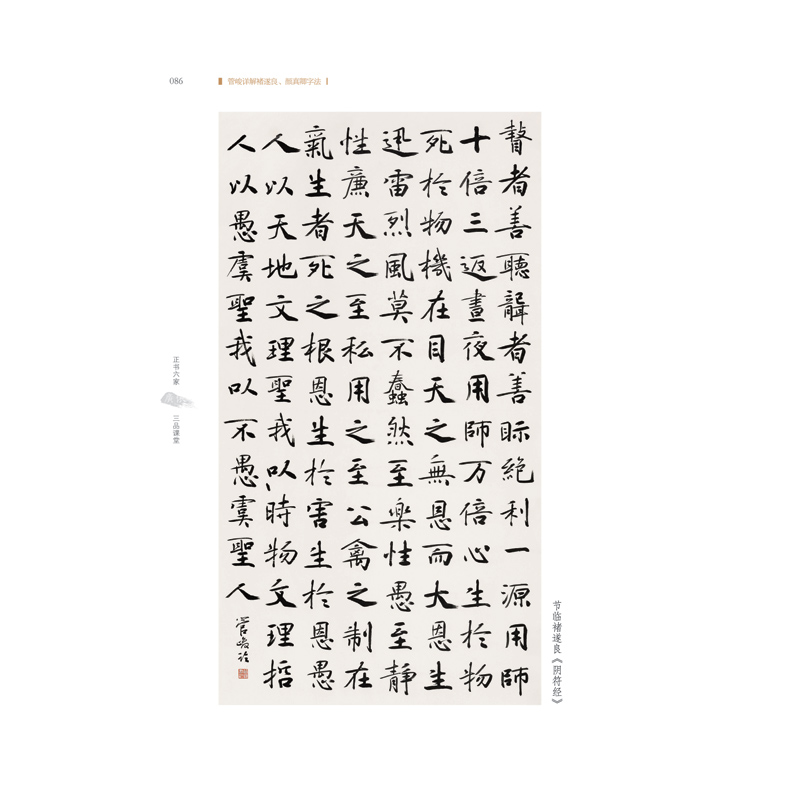 086
管峻详解褚遂良、颜真卿字法
瞽者善聽聾者善眎絕利一源用師
十倍三返晝夜用師万倍心生於物
死於物機在目天之無恩而大恩生
迅雷烈風莫不蠢然至楽性愚至靜
性廉天之至私用之至公禽之制在
氣生者死之根恩生於害生於恩愚
人以天地文理聖我以時物文理哲
人以愚虞聖我以不愚虞聖人
管峻临
节临褚遂良《阴符经》
正书六家
三品课堂